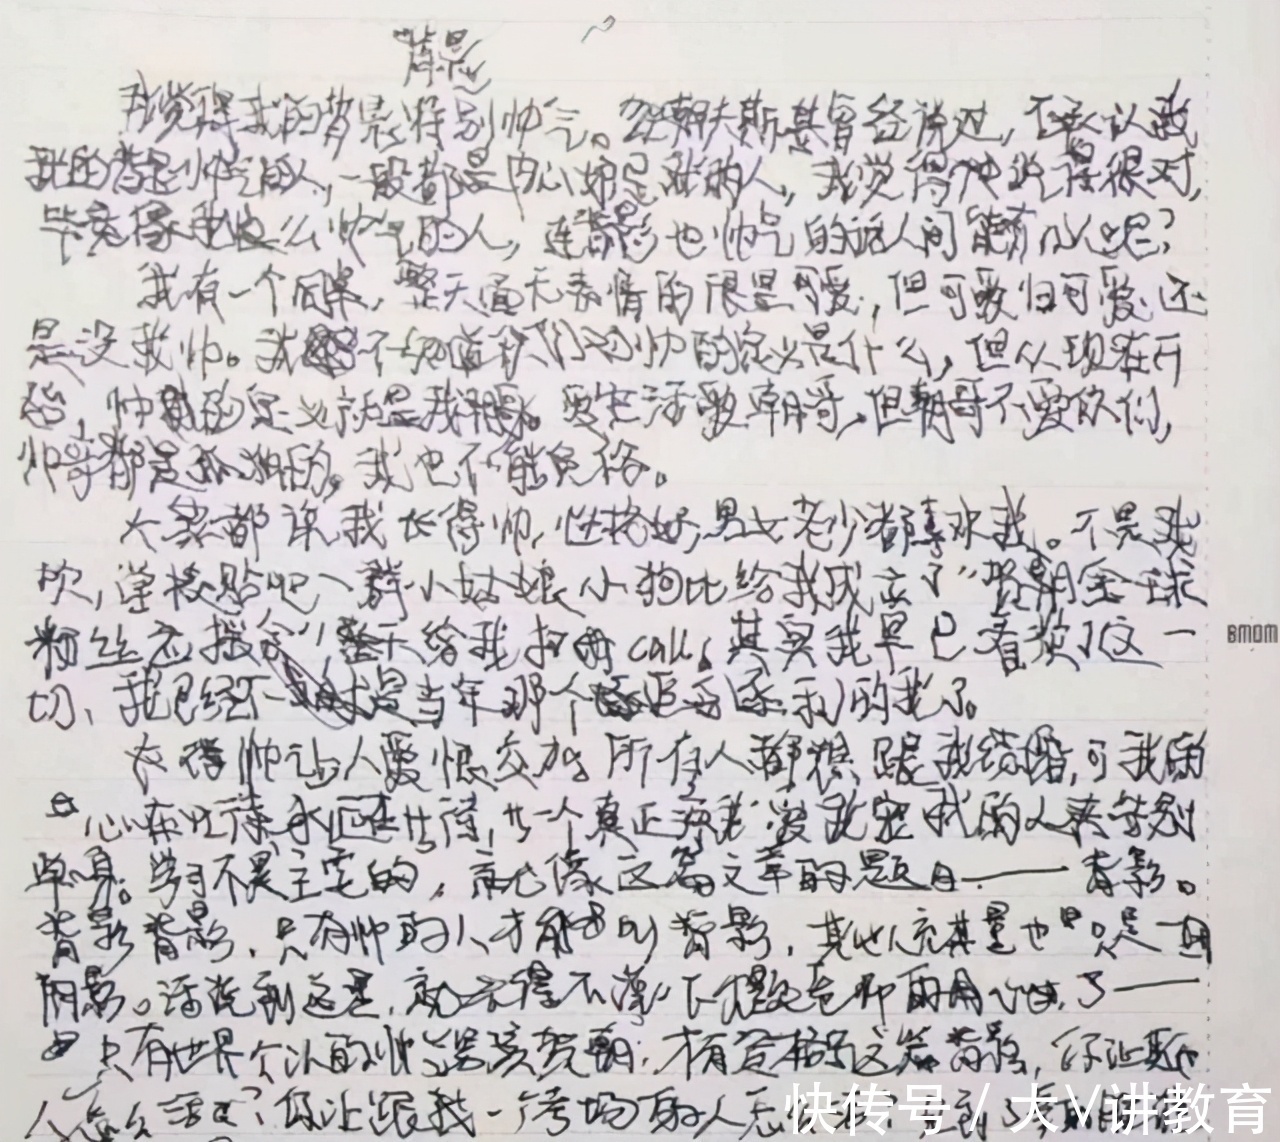 背影
我觉得我的背影特别帅气。贺朝夫斯基曾经说过,不承认我
我的背影帅气的人,一般都是内心妒忌我的人,我觉得他说得很对,
毕竟像我这么帅气的人,连背影也帅气的话人间能有几人呢?
我有一个同桌,整天面无表情的很是可爱,但可爱归可爱,还
是没我帅。我不知道你们对帅的定义是什么,但从现在开
始,帅的定义就是我。爱生活爱朝哥,但朝哥不爱你们,
帅哥都是孤独的,我也不能免俗。
大家都说我长得帅,性格好,男女老少都喜欢我。不是我
吹,学校贴吧一群小姑娘小狗比给我成立了“贺朝全球
粉丝后援会”整天给我打call,其实我早已看淡了这一
切、我已经不是当年那个追逐名利的我了。
长得帅让人爱恨交加,所有人都想跟我结婚,可我的
心在忙,等一个真正爱我宠我的人来告别
单身。学习不是主要的,就像这篇文章的题目——背影。
背影背影,只有帅的人才能叫背影,其他人充其量也只是一团
阴影。话说到这里,就不得不说一下老师的用心了——
只有世界公认的帅男孩贺朝,才有资格写这篇背影,你让其他
人怎么活?你让跟我一个考场的人怎
快传号 / 大V讲教育
BMDM